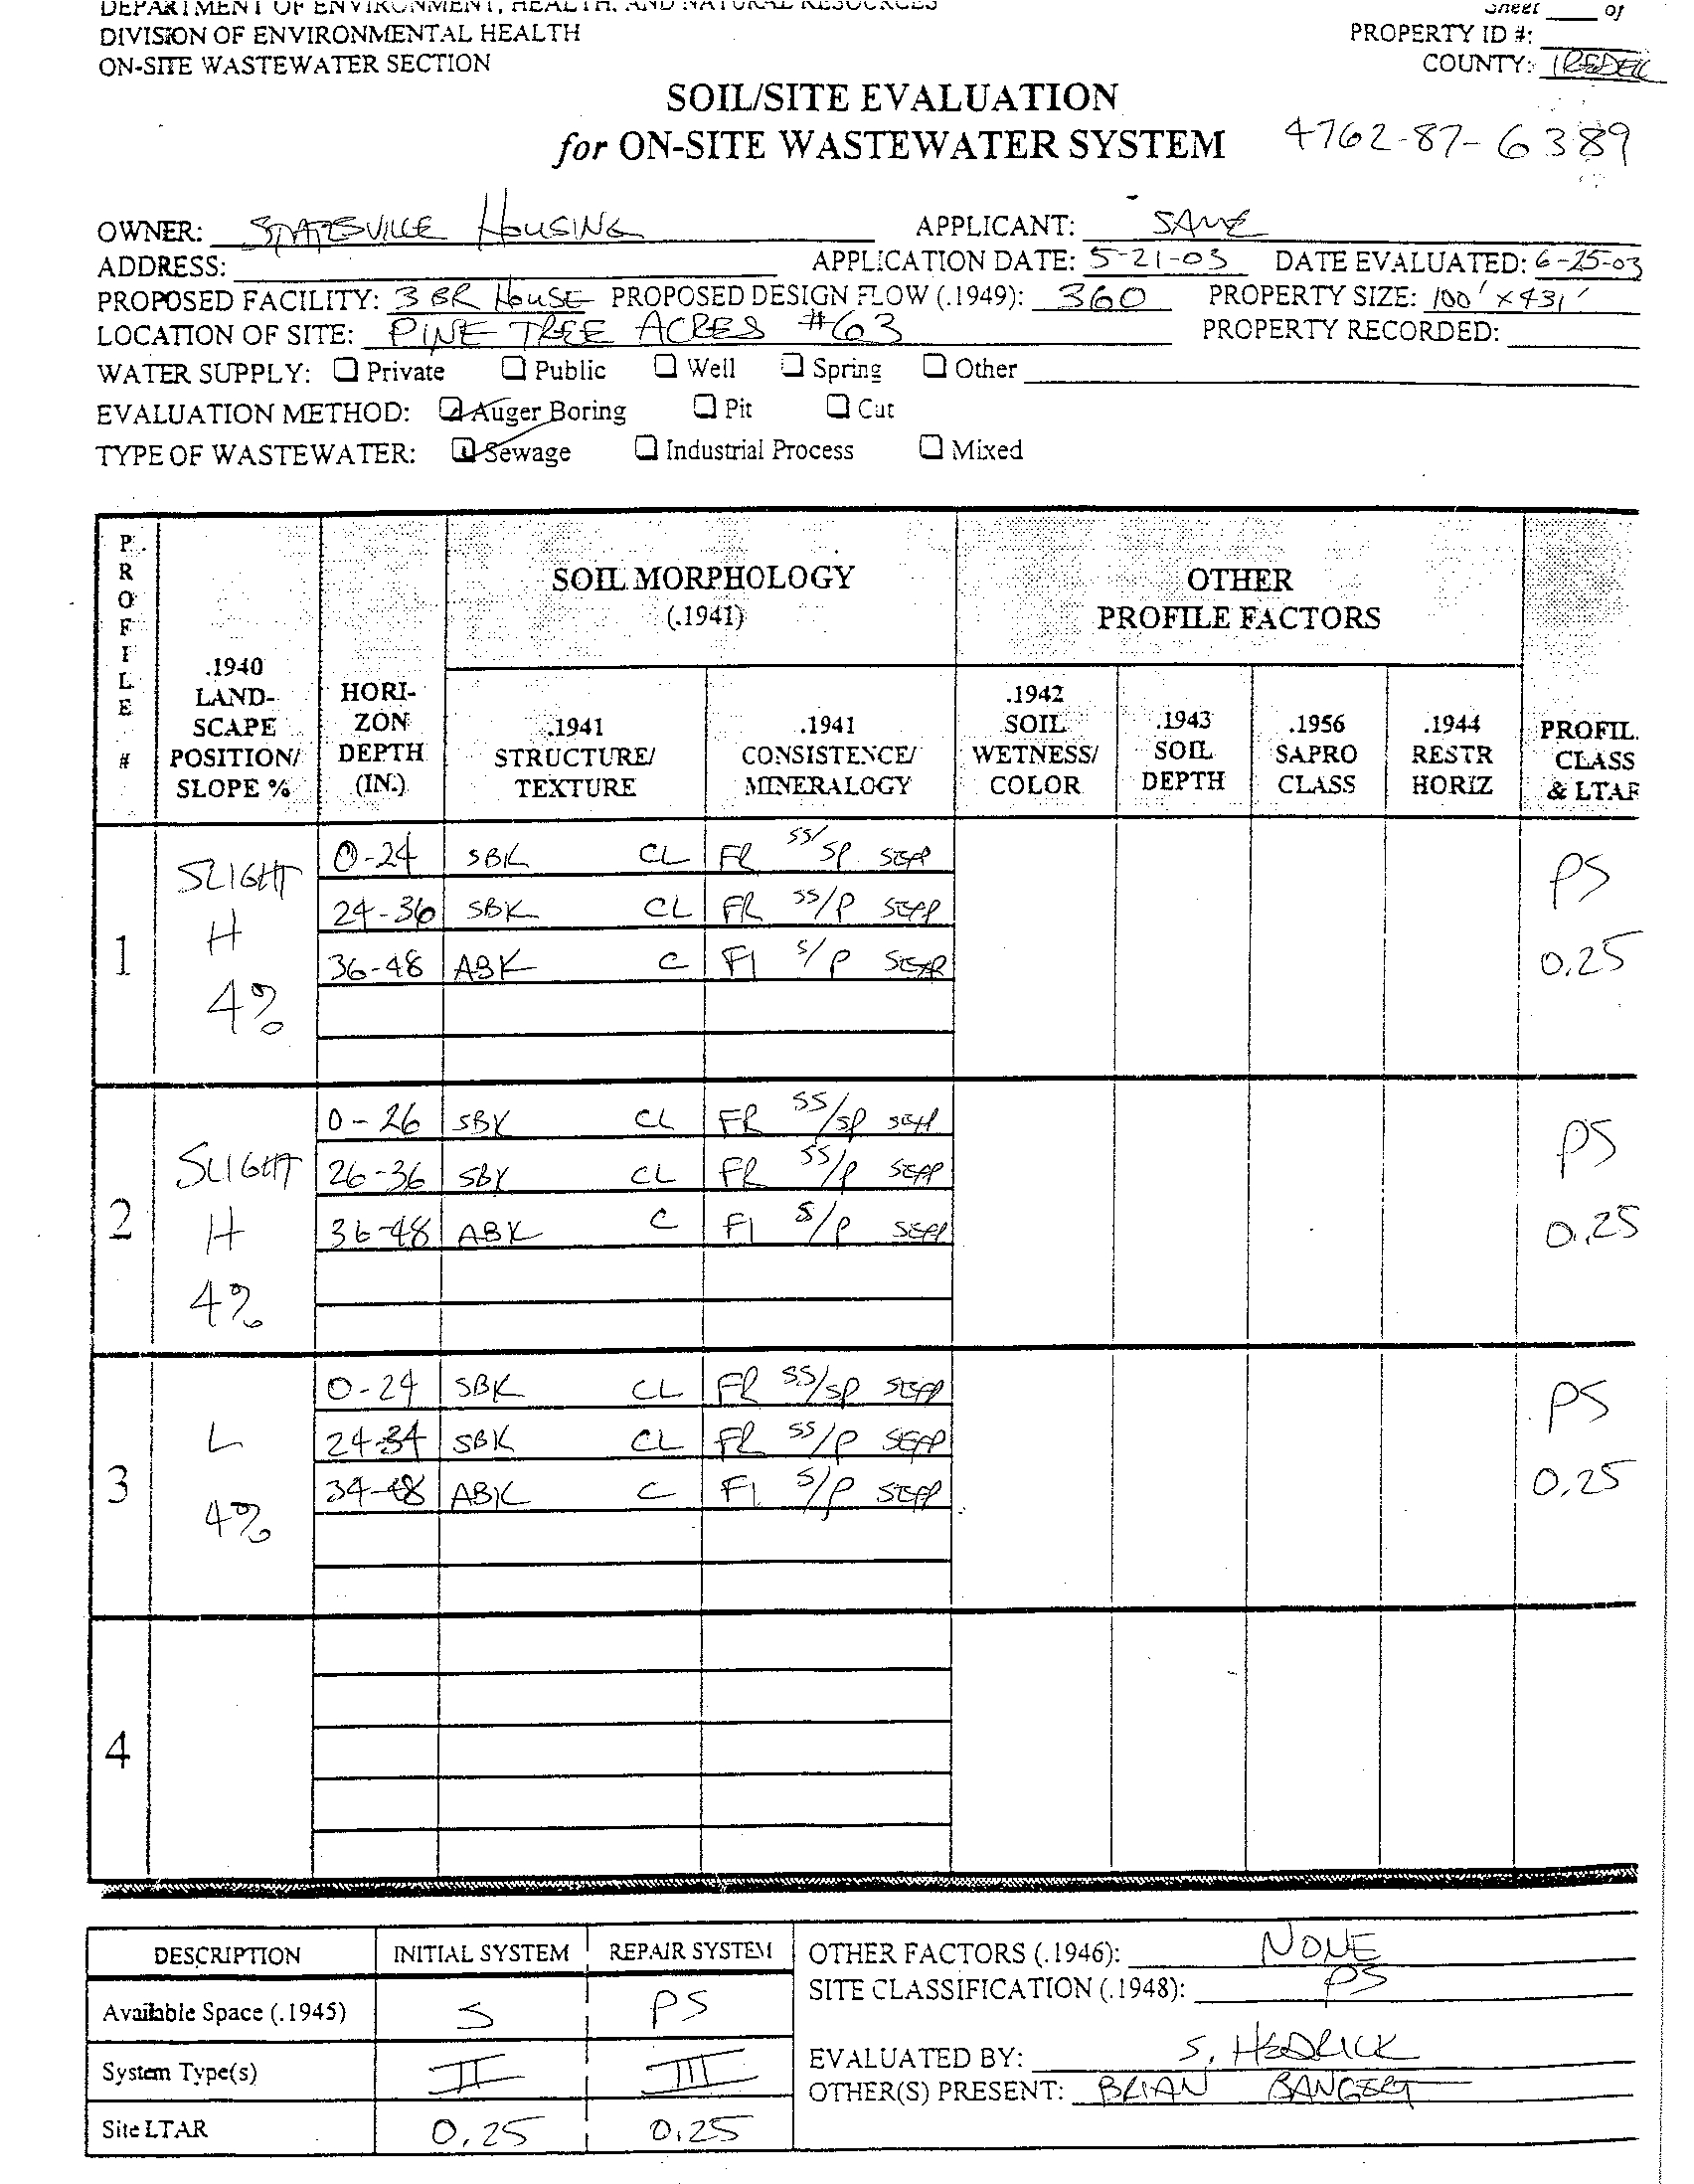 DEPARTMENT OF ENVIRONMENT, HEALTH, AND NATURAL RESOURCES
Sheet ____ of
DIVISION OF ENVIRONMENTAL HEALTH
PROPERTY ID #:
ON-SITE WASTEWATER SECTION
COUNTY: IREDELL
SOIL/SITE EVALUATION
for ON-SITE WASTEWATER SYSTEM
4762-87-6389
OWNER: STATESVILLE HOUSING APPLICANT: SAME
ADDRESS: APPLICATION DATE: 5-21-03 DATE EVALUATED: 6-25-03
PROPOSED FACILITY: 3 BR HOUSE PROPOSED DESIGN FLOW (.1949): 360 PROPERTY SIZE: 100' x 431'
LOCATION OF SITE: PINE TREE ACRES #63 PROPERTY RECORDED:
WATER SUPPLY: Private Public Well Spring Other
EVALUATION METHOD: Auger Boring Pit Cut
TYPE OF WASTEWATER: Sewage Industrial Process Mixed
PROFILE #
.1940 LAND-SCAPE POSITION/ SLOPE %
HORI-ZON DEPTH (IN.)
SOIL MORPHOLOGY
(.1941)
.1941 STRUCTURE/ TEXTURE
.1941 CONSISTENCE/ MINERALOGY
OTHER
PROFILE FACTORS
.1942 SOIL WETNESS/ COLOR
.1943 SOIL DEPTH
.1956 SAPRO CLASS
.1944 RESTR HORIZ
PROFIL. CLASS & LTAR
1
SLIGHT
H
4%
0-24 SBK CL FR SS/SP SEXP
24-36 SBK CL FR SS/P SEXP
36-48 ABK C FI S/P SEXP
PS
0.25
2
SLIGHT
H
4%
0-26 SBK CL FR SS/SP SEXP
26-36 SBK CL FR SS/P SEXP
36-48 ABK C FI S/P SEXP
PS
0.25
3
L
4%
0-24 SBK CL FR SS/SP SEXP
24-34 SBK CL FR SS/P SEXP
34-48 ABK C FI S/P SEXP
PS
0.25
4
DESCRIPTION INITIAL SYSTEM REPAIR SYSTEM
Available Space (.1945) S PS
System Type(s) II III
Site LTAR 0.25 0.25
OTHER FACTORS (.1946): NONE
SITE CLASSIFICATION (.1948): PS
EVALUATED BY: S. HEDRICK
OTHER(S) PRESENT: BRIAN BANGERT